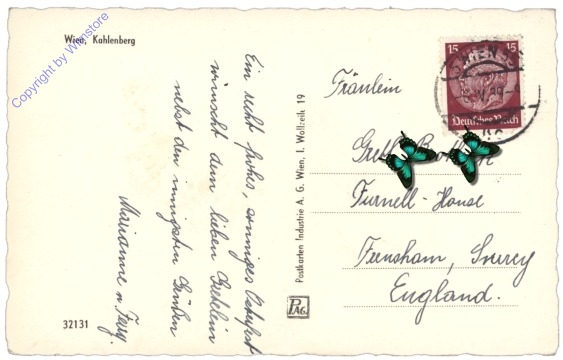 Copyright by Wienstore
Wien, Kahlenberg
Ein recht frohes, sonniges Osterfest
wünscht dem lieben Gretelein
nebst den innigsten Grüßen
Marianne u. Ferry.
32131
Postkarten Industrie A. G. Wien, I. Wollzeile 19
PAG.
15 15
Deutsches Reich
WIEN
Fräulein
Furnell-House
Frensham, Surrey
England.